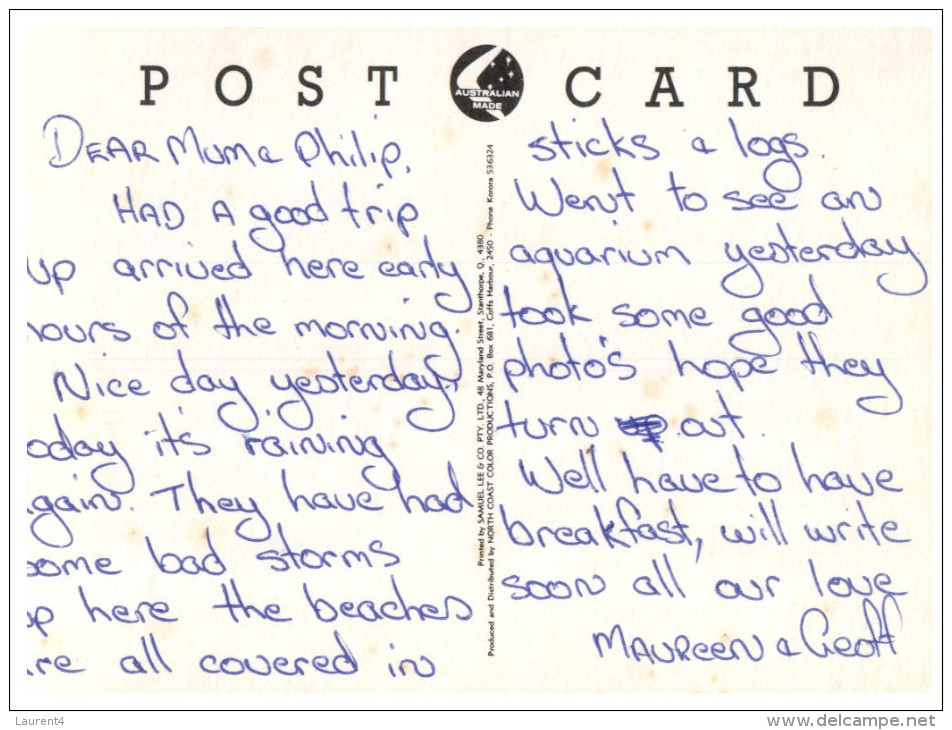 POST CARD
AUSTRALIAN
MADE
DEAR Mum & Philip,
HAD A good trip
up arrived here early
hours of the morning.
Nice day yesterday,
oday it's raining
again. They have had
some bad storms
up here the beaches
are all covered in
Printed by SAMUEL LEE & CO. PTY. LTD., 48 Maryland Street, Stanthorpe, Q. 4380
Produced and Distributed by NORTH COAST COLOR PRODUCTIONS, P.O. Box 681, Coffs Harbour, 2450 - Phone Korora 536324
sticks & logs.
Went to see an
aquarium yesterday
took some good
photo's hope they
turn out.
Well have to have
breakfast, will write
soon all our love
MAUREEN & Geoff
Laurent4
www.delcampe.net